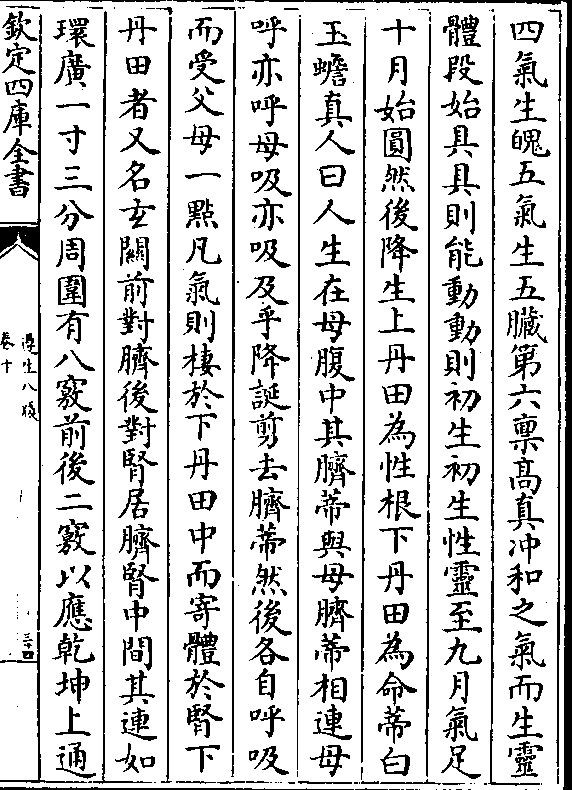 四氣生魄五氣生五臟第六稟髙真冲和之氣而生靈
體段始具具則能動動則初生初生性靈至九月氣足
十月始圓然後降生上丹田為性根下丹田為命蒂白
玉蟾真人曰人生在母腹中其臍蒂與母臍蒂相連母
呼亦呼母吸亦吸及乎降誕剪去臍蒂然後各自呼吸
而受父母一㸃凡氣則棲於下丹田中而寄體於腎下
丹田者又名玄關前對臍後對腎居臍腎中間其連如
環廣一寸三分周圍有八竅前後二竅以應乾坤上通
欽定四庫全書
遵生八牋
卷十
三四